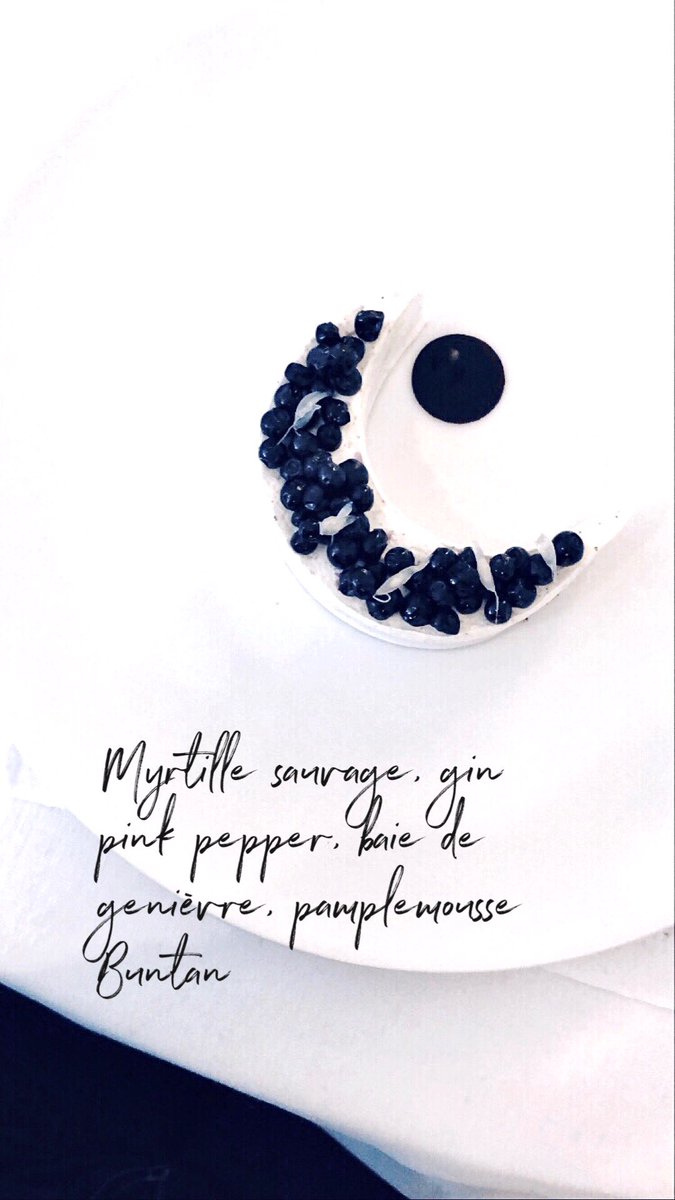 Myrtille sauvage, gin
pink pepper, baie de
genièvre, pamplemousse
Buntan